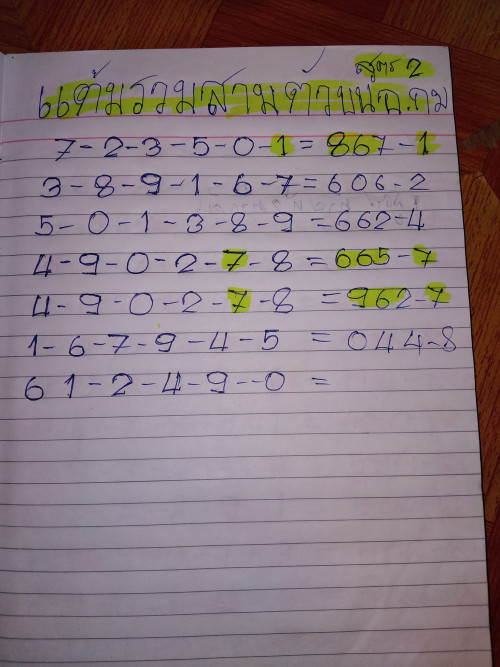 สูตร 2
แต้มรวมสามตัวบนอ.คม
7-2-3-5-0-1=867-1
3-8-9-1-6-7=606-2
5-0-1-3-8-9=662-4
4-9-0-2-7-8=665-7
4-9-0-2-7-8=962-7
1-6-7-9-4-5=044-8
6 1-2-4-9--0 =